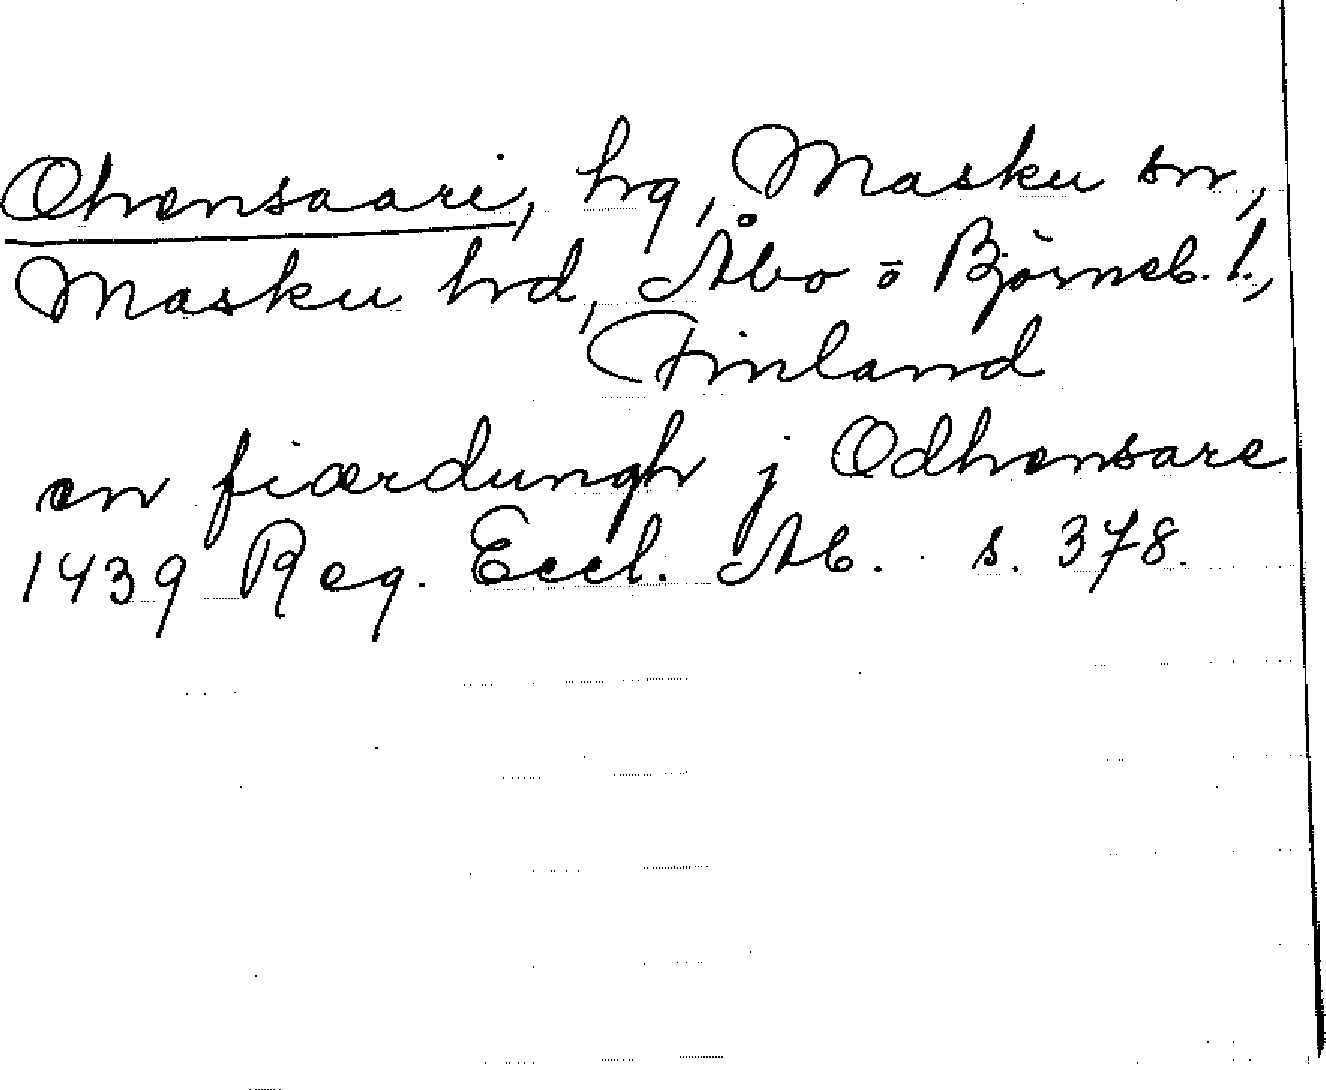 Ohensaari, hg, Masku sn,
Masku hd, Åbo o Björneb. l.,
Finland
en fiærdungh j Odhensare
1439 Reg. Eccl. Ab. s. 378.